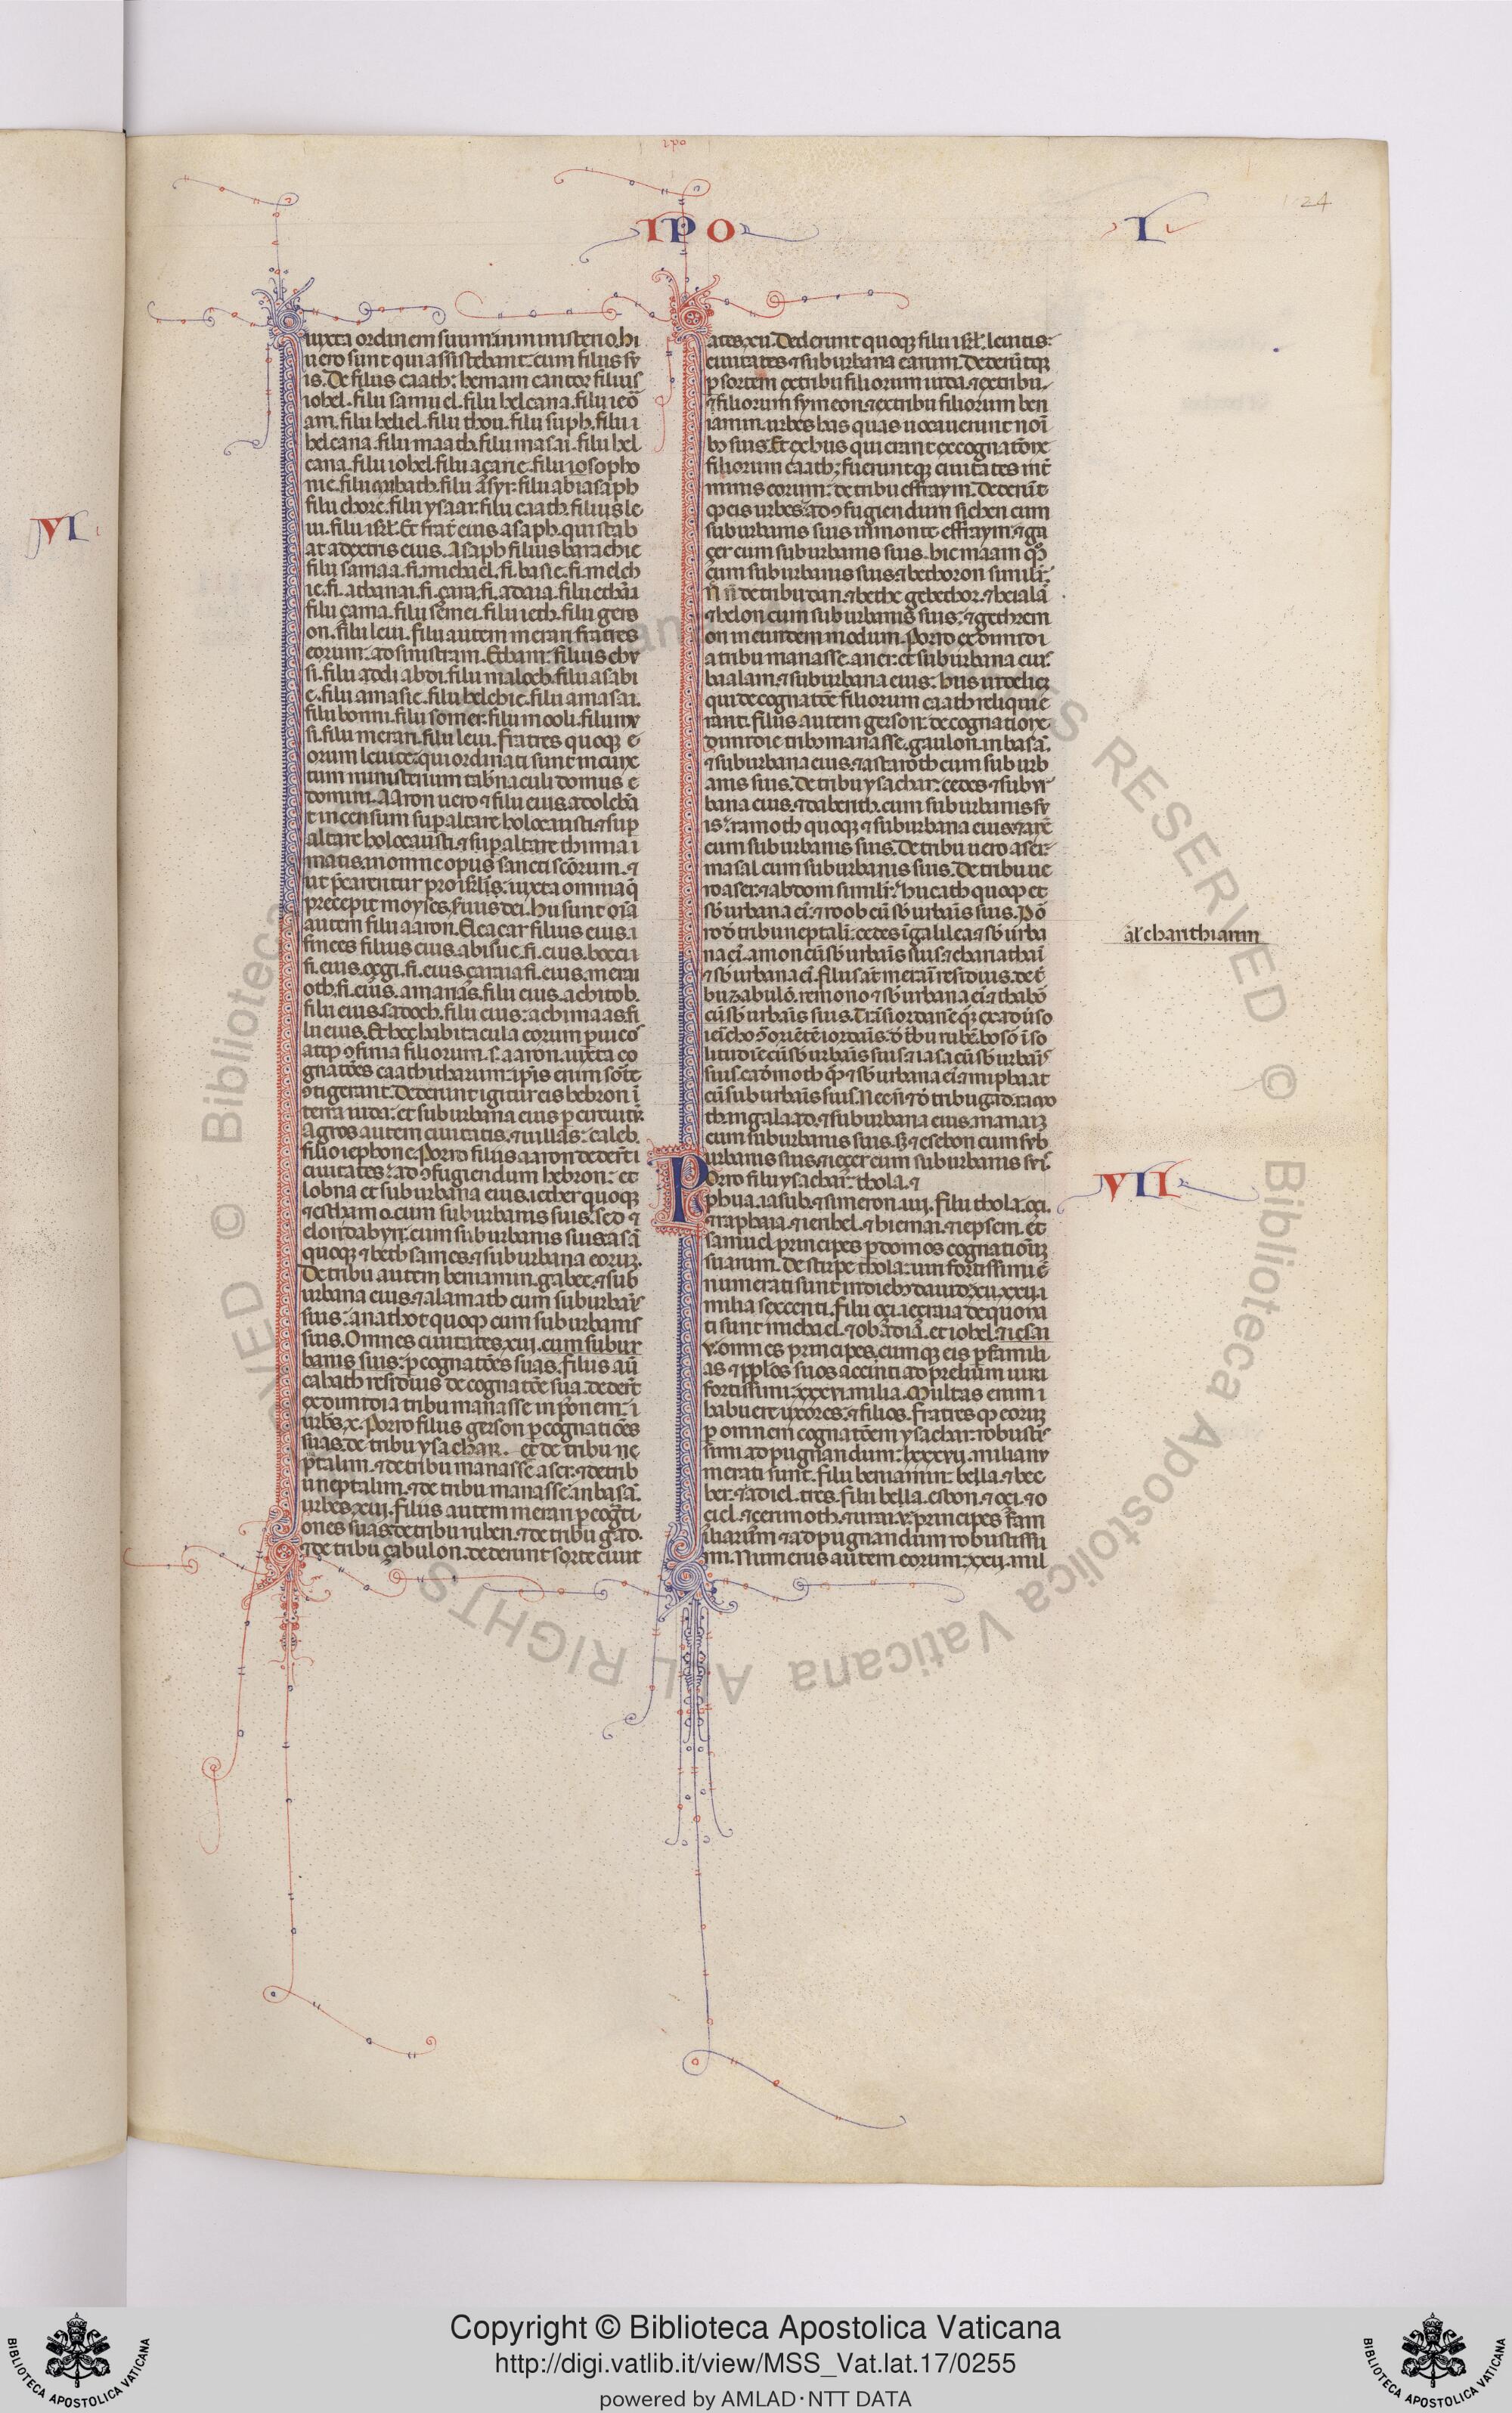 ipo
IPO
I
124
VI
iuxta ordinem suum in ministerio. hi
uero sunt qui assistebant: cum filiis su
is. De filiis caath: hemam cantor filius
iohel. filii samuel. filii helcana. filii ieō
am. filii heliel. filii thou. filii suph. filii
helcana. filii maath. filii masai. filii hel
cana. filii iohel. filii açarie. filii iosopho
nie. filii
filii chore. filii ysaar. filii caath. filii le
ui. filii isrl̄. Et frat̄ eius asaph. qui stab
at a dextris eius. Asaph filius barachie
filii samaa. fi. michael. fi. basie. fi. melch
ie. fi. athanai. fi. çara. fi. adaia. filii ethāi
filii çama. filii semei. filii ieth. filii gers
on. filii leui. filii autem merari fratres
eorum: ad sinistram. Ethan: filius chu
si. filii abdi. filii maloch. filii asabi
e. filii amasie. filii helchie. filii amasai.
filii bonni. filii somer. filii mooli. filii mu
si. filii merari. filii leui. fratres quoqꝫ e
orum leuite: qui ordinati sunt in cunc
tum ministerium tab̄naculi domus
domini. Aaron uero ⁊ filii eius adolebā
t incensum sup altare holocausti. ⁊ sup
altare thimia
matis. in omne opus sancti scōrum. ⁊
ut p̄carentur pro isrl̄. iuxta omnia q̄
precepit moyses. s̄uus dei. Hii sunt
autem filii aaron. Eleaçar filius eius.
finees filius eius. abisue. fi. eius. bocci
fi. eius. oçi. fi. eius. çaraia fi. eius. merai
oth. fi. eius. amarias. filii eius. achitob.
filii eius. sadoch. filii eius: achimaas. fi
lii eius. Et hec habitacula eorum p uicos
atqꝫ ꝯfinia filiorum. s. aaron. iuxta co
gnatōes caathitharum: ip̄is enim sorte
ꝯtigerant. Dederunt igitur eis hebron ī
terra iuda: et suburbana eius p circuitū.
Agros autem ciuitatis. ⁊ uillas: caleb.
filio iephone. Porro filiis aaron dederūt
ciuitates: ad ꝯfugiendum hebron: et
lobna et suburbana eius. iether quoqꝫ
⁊ esthamo. cum suburbanis suis. sed ⁊
elon. dabyr: cum suburbanis suis. asā
quoqꝫ ⁊ bethsames. ⁊ suburbana eorum.
De tribu autem beniamin. gabee. ⁊ sub
urbana eius. ⁊ alamath cum suburbāis
suis: anathot quoqꝫ cum suburbanis
suis. Omnes ciuitates. xiii. cum subur
banis suis: p cognatōes suas. filiis aū
cahath residuis de cognatōe sua. dederūt
ex dimidia tribu manasse in possessionem:
urbes. x. Porro filiis gerson p cognatiōes
suas. de tribu ysachar. et de tribu
manasse aser. ⁊ de trib
u neptalim. ⁊ de tribu manasse in basā.
urbes. xiii. filiis autem merari p cogn̄ti
ones suas. de tribu ruben. ⁊ de tribu gad.
⁊ de tribu çabulon. dederunt sorte ciuit
ates. xii. Dederunt quoqꝫ filii isrl̄. leuitis:
ciuitates ⁊ suburbana earum. Dederūtqꝫ
p sortem ex tribu filiorum iuda. ⁊ ex tribu
filiorum symeon. ⁊ ex tribu filiorum ben
iamin. urbes has quas uocauerunt noī
bꝫ suis. Et ex his qui erant ex cognatōe
filiorum caath: fueruntqꝫ ciuitates int̄
minis eorum: de tribu effraym. Dederūt
qꝫ eis urbes: ad ꝯfugiendum sichen cum
suburbanis suis in monte effraym. ⁊ ga
çer cum suburbanis suis. hiemaam qꝫ
cum suburbanis suis. ⁊ bethoron simili.
de tribu dan. ⁊ bethe gebethor. ⁊ heialā
⁊ helon cum suburbanis suis. ⁊ gethrem
on in eundem modum. Porro ex dimidi
a tribu manasse. aner: et suburbana eius.
baalam. ⁊ suburbana eius: hiis uidelicꝫ
qui de cognatōe filiorum caath reliqui e
rant. filiis autem gerson: de cognatione
dimidie tribꝫ manasse. gaulon. in basā.
⁊ suburbana eius. ⁊ astaroth cum suburb
anis suis. De tribu ysachar: cedes ⁊ subur
bana eius. ⁊ dabereth. cum suburbanis su
is: ramoth quoqꝫ ⁊ suburbana eius.
cum suburbanis suis. De tribu uero aser:
masal cum suburbanis suis. De tribu ue
ro aser. ⁊ abdom simili. hucath quoqꝫ et
sb̄urbana eī. ⁊ roob cū sb̄urbāis suis. Por
ro d̄ tribu neptali. cedes ī galilea ⁊ sb̄urba
na eī. amon cū sb̄urbāis suis. ⁊ chariathaī
⁊ sb̄urbana eī. filiis aūt merari residuis. de t̄
bu zabulō. remono ⁊ sb̄urbana eī. ⁊ thabō
cū sb̄urbāis suis.
al' charithiarim
litudie cū sb̄urbāis suis. ⁊ iasa cū sb̄urbāis
cū suburbāis suis. Necñ ⁊ d̄ tribu gad. ramo
th in galaad. ⁊ suburbana eius. manaiꝫ
cum suburbanis suis. sꝫ ⁊ esebon cum sub
urbanis suis. ⁊ ieçer cum suburbanis suis.
VII
Porro filii ysachar: thola. ⁊
phua. iasub. ⁊ simeron. iiii. filii thola. oçi.
⁊ raphaia. ⁊ ieribel. ⁊ hiemai. ⁊ iepsem. et
samuel. principes p domos cognationū
suarum. De stirpe thola: uiri fortissimi
numerati sunt in diebꝫ dauid. xxii.
milia sexcenti. filii oçi. ieçraia de quo na
ti sunt michael. ⁊ obadiā. et iohel. ⁊ iesai
v. omnes principes. cumqꝫ eis p famili
as ⁊ pplos suos accincti ad prelium uiri
fortissimi: xxxvi. milia. Multas enim
habuere uxores. ⁊ filios. fratres qꝫ eorum
p omnem cognatōem ysachar: robustis
simi ad pugnandum: lxxxvii. milia nu
merati sunt. filii beniamin: bella. ⁊ bec
her. ⁊ adiel. tres. filii bella. esbon. ⁊ oçi. ⁊ o
çiel. ⁊ cerimoth. ⁊ urai. v. principes fam
iliarum ⁊ ad pugnandum robustissi
mi. Numerus autem eorum: xxii. mil
Copyright © Biblioteca Apostolica Vaticana
http://digi.vatlib.it/view/MSS_Vat.lat.17/0255
powered by AMLAD·NTT DATA
BIBLIOTECA APOSTOLICA VATICANA
BIBLIOTECA APOSTOLICA VATICANA
© Biblioteca Apostolica Vaticana ALL RIGHTS RESERVED